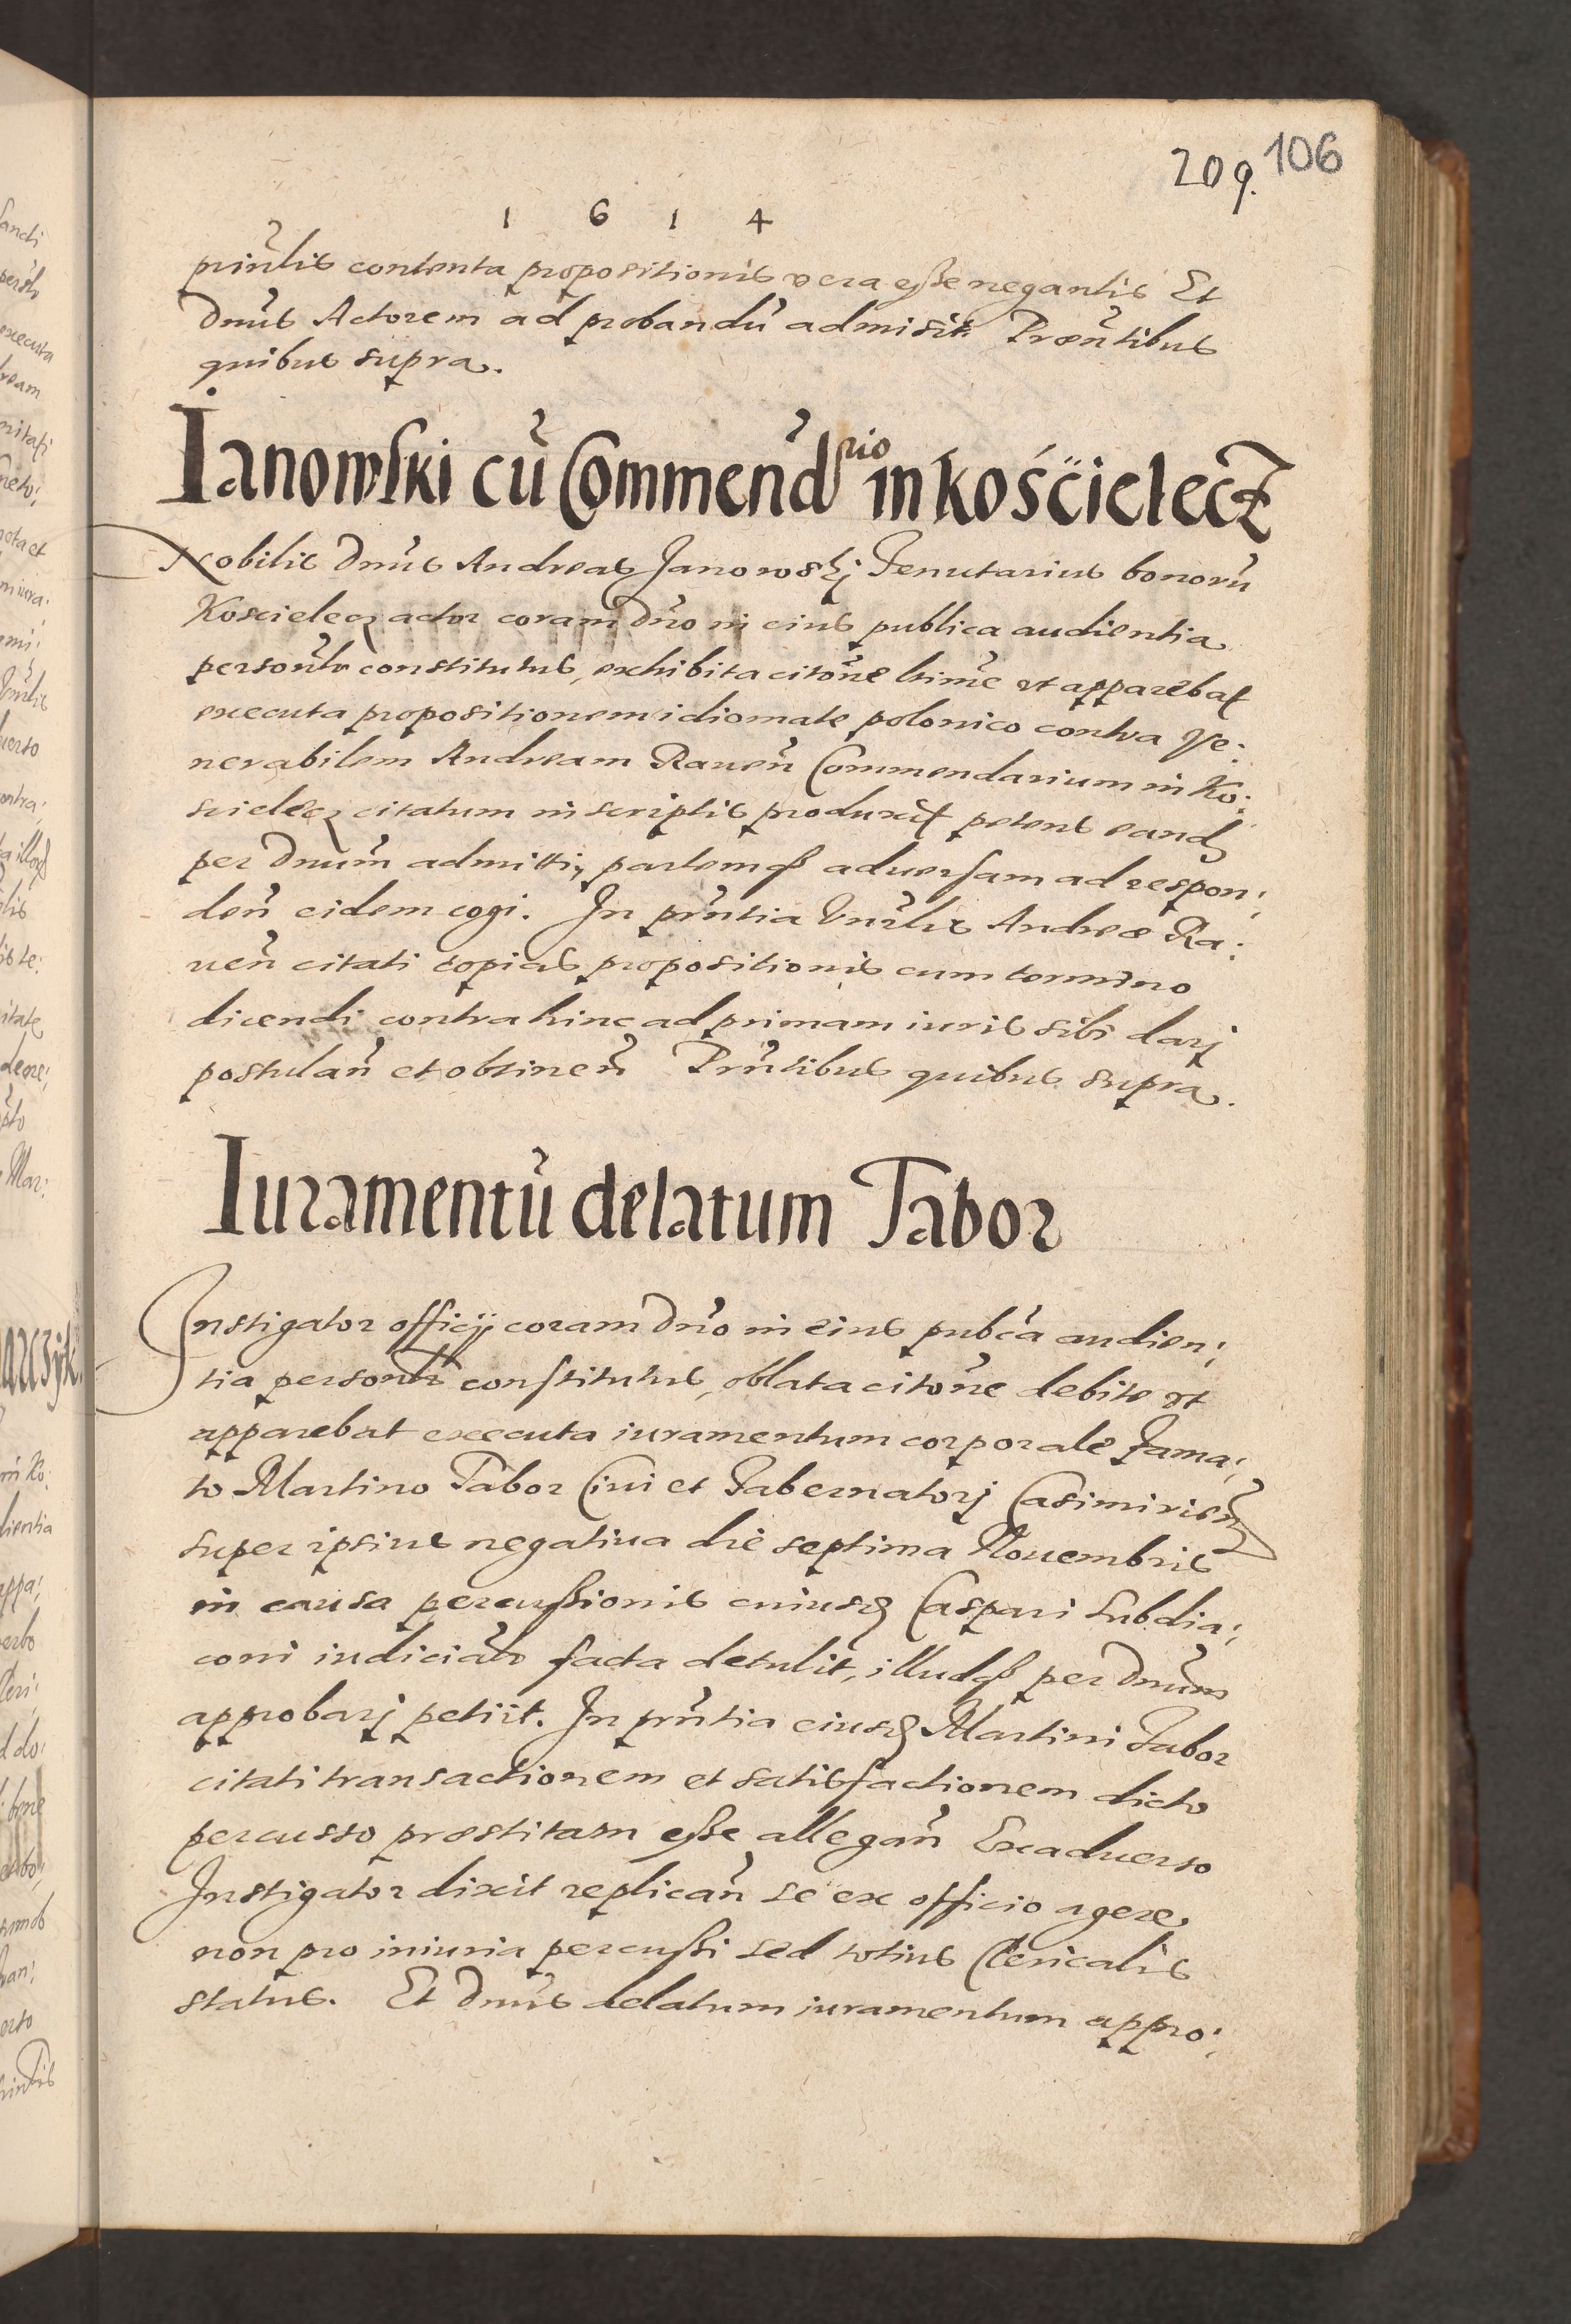 209. 106
1 6 1 4
prinĉlis contenta propositionis vera esse negantis Et
Dnus Actorem ad probandũ admisit Præntibus
quibus supra.
Ianowski cũ Commendrio in Kościelecz
Nobilis Dnus Andreas Janowskj Tenutarius bonorũ
Koscielecz actor coram Dno in eius publica audientia
personlr constitutus, exhibita citone ltime vt apparebat
executa propositionem idiomate polonico contra Ve:
nerabilem Andream Rauen Commendarium in Ko:
scielecz citatum in scriptis produxit petens eand
per Dnum admitti, partemq aduersam ad respon:
den eidem cogi. In prntia Vnrlis Andreæ Ra:
uen citati copias propositionis cum termino
dicendi contra hinc ad primam iuris sibi darj
postulan et obtinen Prntibus quibus supra.
Iuramentũ delatum Tabor
Instigator officij coram Dno in eius pubca audien:
tia personlr constitutus, oblata citone debite vt
apparebat executa iuramentum corporale Fama:
to Martino Tabor Ciui et Tabernatorj Casimirien
super ipsius negatiua die septima Nouembris
in causa percussionis cuiusd Caspari Subdia:
coni iudicialr facta detulit, illudq per Dnum
approbarj petijt. In prntia eiusd Martini Tabor
citati transactionem et satisfactionem dicto
percusso præstitam esse allegan Exaduerso
Instigator dixit replican se ex officio agere,
non pro iniuria percussi sed totius Clericalis
status. Et Dnus delatum iuramentum appro: